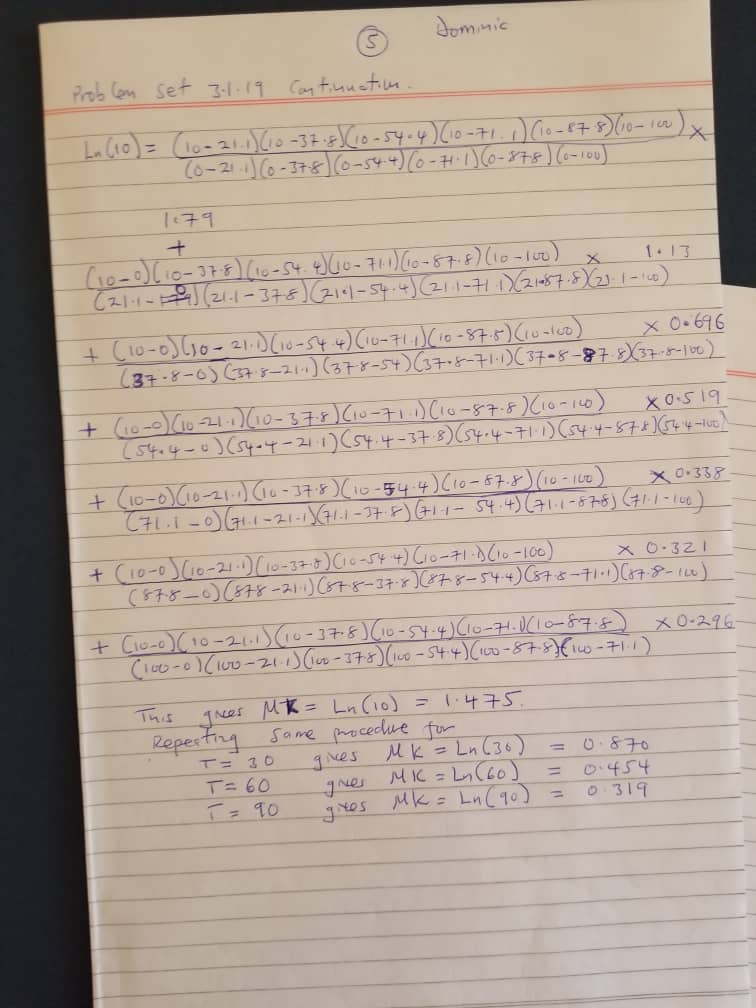 ⑤ Dominic
Problem set 3.1.19 Continuation.
Ln(10) = (10-21.1)(10-37.8)(10-54.4)(10-71.1)(10-87.8)(10-100) ×
(0-21.1)(0-37.8)(0-54.4)(0-71.1)(0-87.8)(0-100)
1.79
+
(10-0)(10-37.8)(10-54.4)(10-71.1)(10-87.8)(10-100) × 1.13
(21.1-0)(21.1-37.8)(21.1-54.4)(21.1-71.1)(21.87.8)(21.1-100)
+ (10-0)(10-21.1)(10-54.4)(10-71.1)(10-87.8)(10-100) × 0.696
(37.8-0)(37.8-21.1)(37.8-54)(37.8-71.1)(37.8-87.8)(37.8-100)
+ (10-0)(10-21.1)(10-37.8)(10-71.1)(10-87.8)(10-100) × 0.519
(54.4-0)(54.4-21.1)(54.4-37.8)(54.4-71.1)(54.4-87.8)(54.4-100)
+ (10-0)(10-21.1)(10-37.8)(10-54.4)(10-87.8)(10-100) × 0.338
(71.1-0)(71.1-21.1)(71.1-37.8)(71.1-54.4)(71.1-87.8)(71.1-100)
+ (10-0)(10-21.1)(10-37.8)(10-54.4)(10-71.1)(10-100) × 0.321
(87.8-0)(87.8-21.1)(87.8-37.8)(87.8-54.4)(87.8-71.1)(87.8-100)
+ (10-0)(10-21.1)(10-37.8)(10-54.4)(10-71.1)(10-87.8) × 0.296
(100-0)(100-21.1)(100-37.8)(100-54.4)(100-87.8)(100-71.1)
This gives MK = Ln(10) = 1.475.
Repeating same procedure for
T = 30 gives MK = Ln(30) = 0.870
T = 60 gives MK = Ln(60) = 0.454
T = 90 gives MK = Ln(90) = 0.319